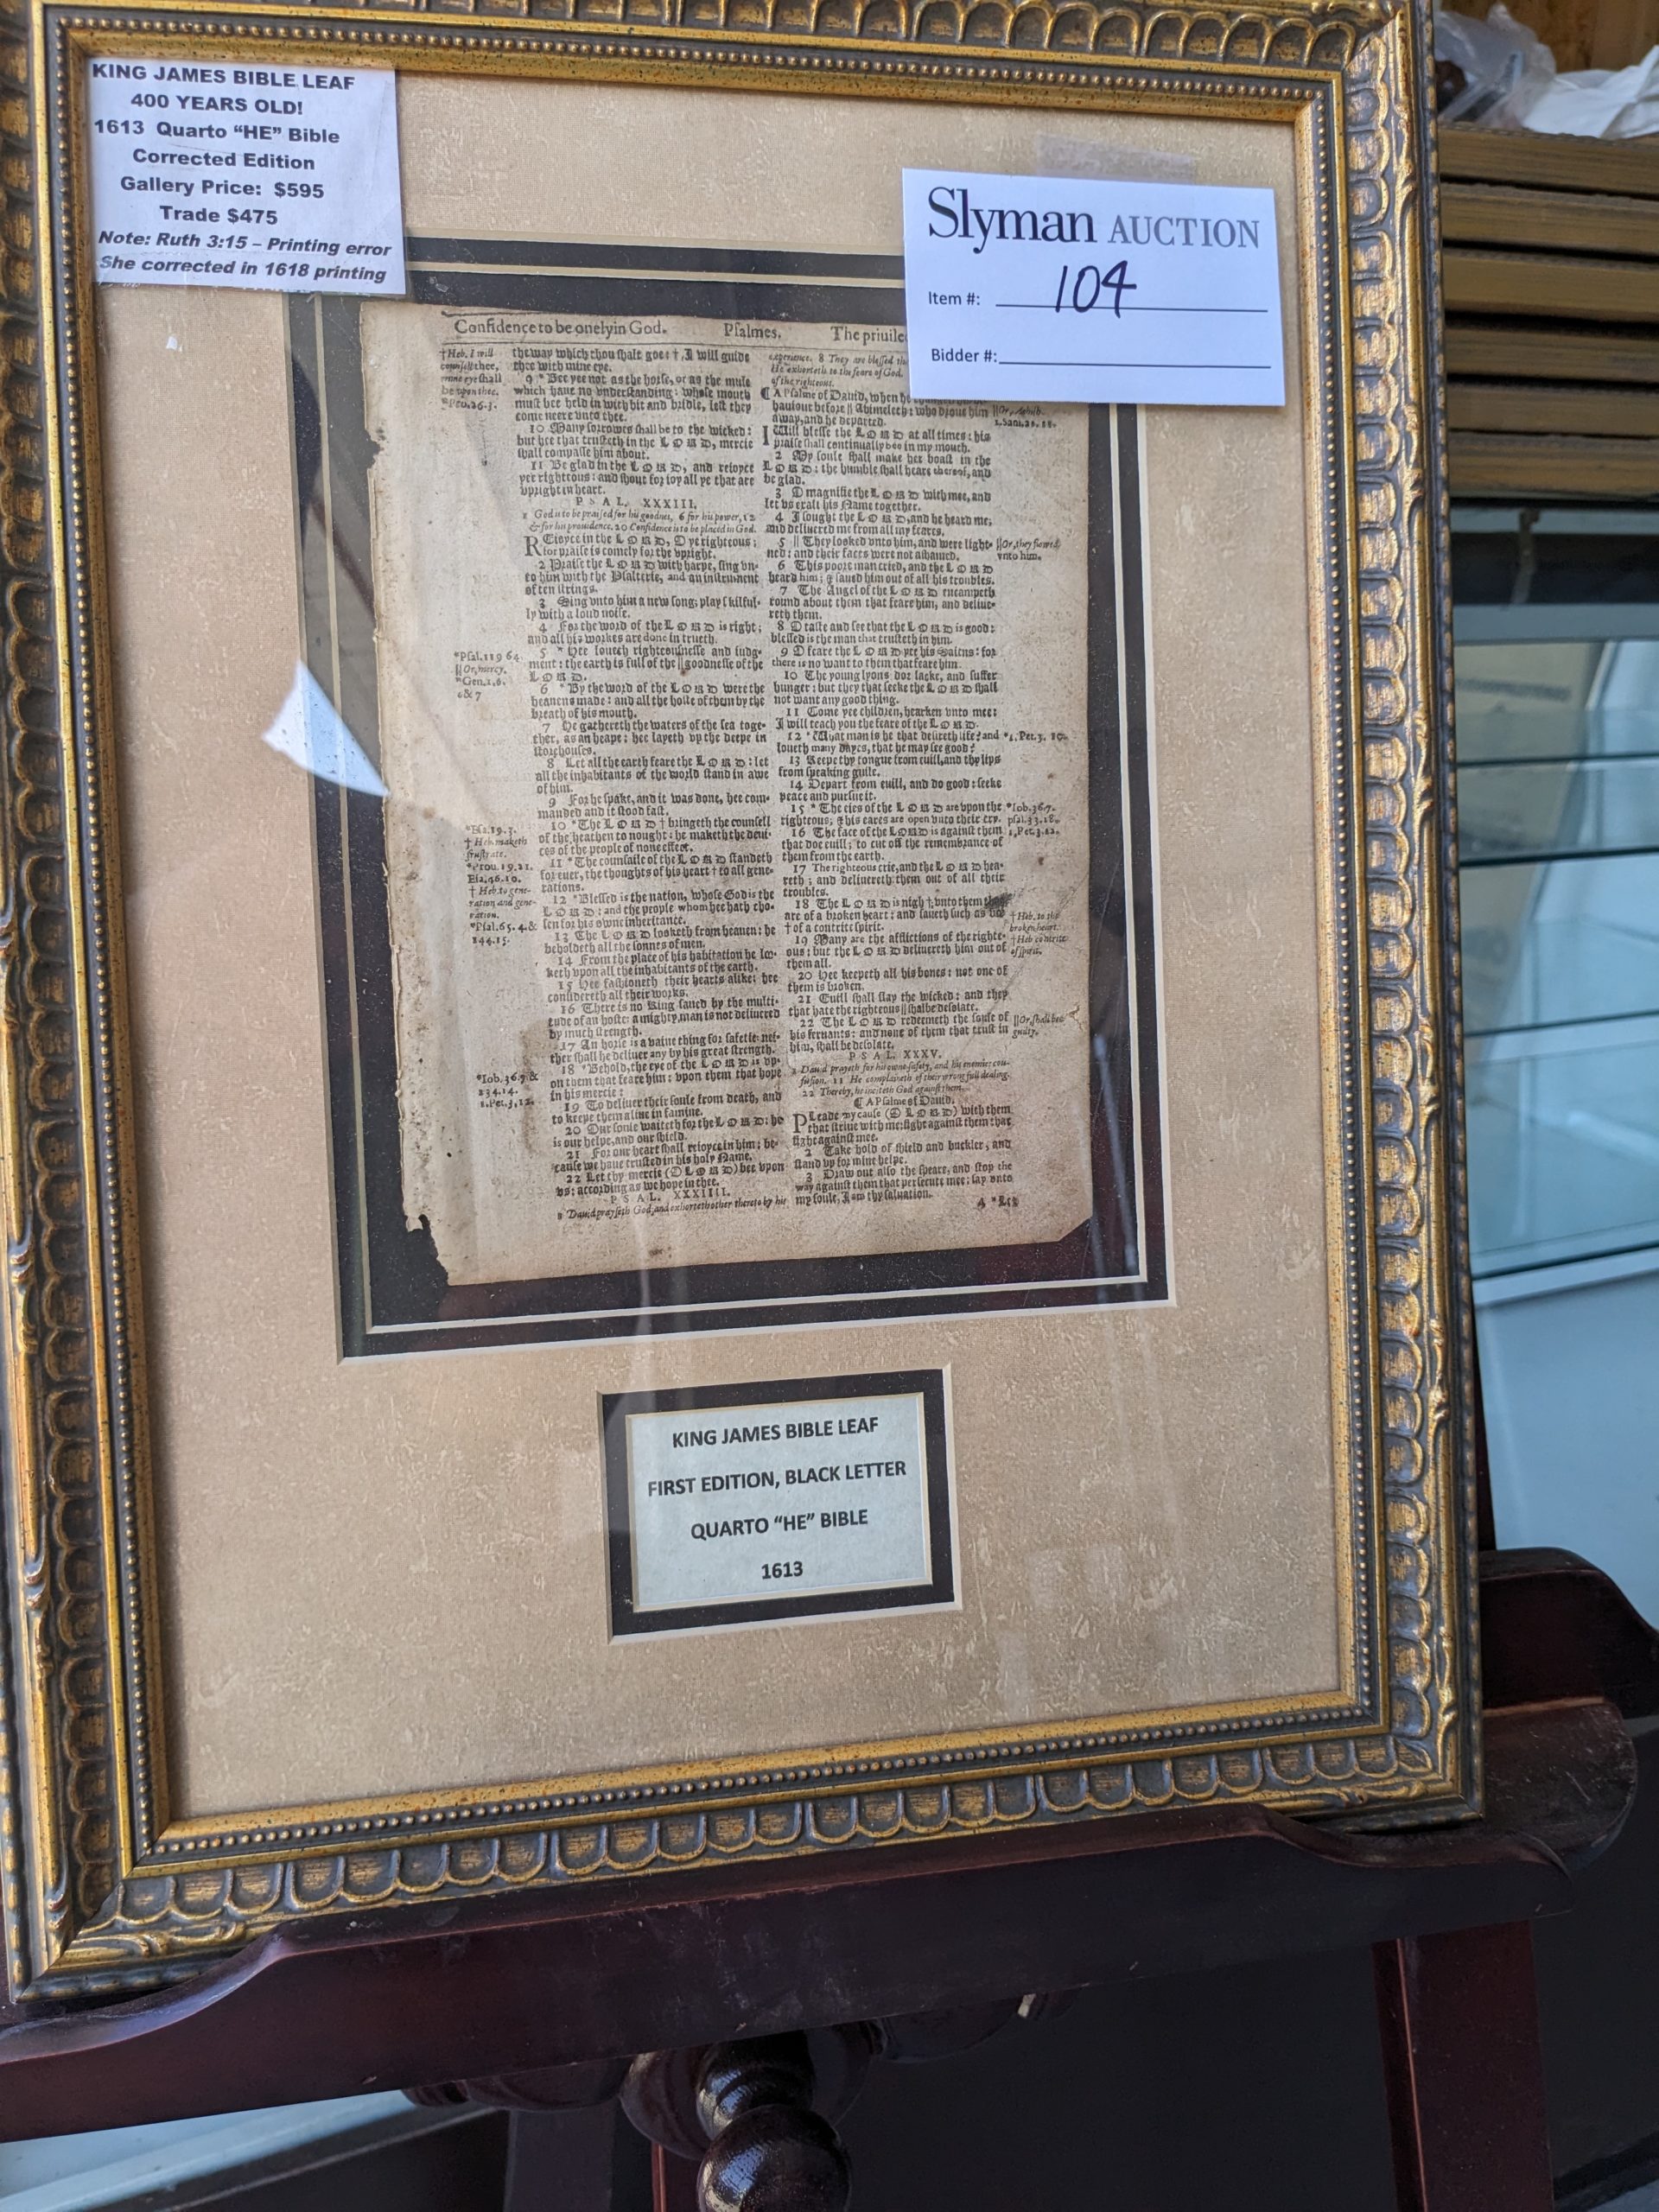 KING JAMES BIBLE LEAF
400 YEARS OLD!
1613 Quarto “HE” Bible
Corrected Edition
Gallery Price: $595
Trade $475
Note: Ruth 3:15 – Printing error
She corrected in 1618 printing
Slyman AUCTION
Item #: 104
Bidder #:
Confidence to be onely in God. Psalmes. The priuile
the way which thou shalt goe: † I will guide
thee with mine eye.
9 * Bee yee not as the horse, or as the mule
which haue no vnderstanding: whose mouth
must bee held in with bit and bridle, lest they
come neere vnto thee.
10 Many sorrowes shall be to the wicked:
but hee that trusteth in the LORD, mercie
shall compasse him about.
11 Be glad in the LORD, and reioyce
yee righteous: and shout for ioy all ye that are
vpright in heart.
PSAL. XXXIII.
1 God is to be praised for his goodnes, 6 for his power, 12
& for his prouidence. 20 Confidence is to be placed in God.
REioyce in the LORD, O ye righteous:
for praise is comely for the vpright.
2 Praise the LORD with harpe, sing vn-
to him with the Psalterie, and an instrument
of ten strings.
3 Sing vnto him a new song; play skilful-
ly with a loud noise.
4 For the word of the LORD is right;
and all his workes are done in trueth.
5 * Hee loueth righteousnesse and iudg-
ment: the earth is full of the || goodnesse of the
LORD.
6 * By the word of the LORD were the
heauens made: and all the hoste of them by the
breath of his mouth.
7 He gathereth the waters of the sea toge-
ther, as an heape: hee layeth vp the deepe in
storehouses.
8 Let all the earth feare the LORD: let
all the inhabitants of the world stand in awe
of him.
9 For he spake, and it was done, hee com-
manded and it stood fast.
10 * The LORD † bringeth the counsell
of the heathen to nought: he maketh the deui-
ces of the people of none effect.
11 * The counsaile of the LORD standeth
for euer, the thoughts of his heart † to all gene-
rations.
12 * Blessed is the nation, whose God is the
LORD: and the people whom hee hath cho-
sen for his owne inheritance.
13 The LORD looketh from heauen: he
beholdeth all the sonnes of men.
14 From the place of his habitation he loo-
keth vpon all the inhabitants of the earth.
15 Hee fashioneth their hearts alike: hee
considereth all their works.
16 There is no King saued by the multi-
tude of an hoste: a mighty man is not deliuered
by much strength.
17 An horse is a vaine thing for safetie: nei-
ther shall he deliuer any by his great strength.
18 * Behold, the eye of the LORD is vp-
on them that feare him: vpon them that hope
in his mercie:
19 To deliuer their soule from death, and
to keepe them aliue in famine.
20 Our soule waiteth for the LORD: he
is our helpe, and our shield.
21 For our heart shall reioyce in him: be-
cause we haue trusted in his holy Name.
22 Let thy mercie (O LORD) bee vpon
vs: according as we hope in thee.
PSAL. XXXIIII.
1 Dauid prayseth God, and exhorteth other thereto by his
experience. 8 They are blessed
He exhorteth to the feare of God.
of the righteous.
¶ A Psalme of Dauid, when he
hauiour before || Abimelech: who droue him
away, and he departed.
I Will blesse the LORD at all times: his
praise shall continually bee in my mouth.
2 My soule shall make her boast in the
LORD: the humble shall heare thereof, and
be glad.
3 O magnifie the LORD with mee, and
let vs exalt his Name together.
4 I sought the LORD, and he heard me;
and deliuered me from all my feares.
5 || They looked vnto him, and were light-
ned: and their faces were not ashamed.
6 This poore man cried, and the LORD
heard him; & saued him out of all his troubles.
7 The Angel of the LORD encampeth
round about them that feare him, and deliue-
reth them.
8 O taste and see that the LORD is good:
blessed is the man that trusteth in him.
9 O feare the LORD yee his Saints: for
there is no want to them that feare him.
10 The young lyons doe lacke, and suffer
hunger: but they that seeke the LORD shall
not want any good thing.
11 Come yee children, hearken vnto mee:
I will teach you the feare of the LORD.
12 * What man is he that desireth life? and
loueth many dayes, that he may see good?
13 Keepe thy tongue from euill, and thy lips
from speaking guile.
14 Depart from euill, and do good: seeke
peace and pursue it.
15 * The eies of the LORD are vpon the
righteous; & his eares are open vnto their cry.
16 The face of the LORD is against them
that doe euill; to cut off the remembrance of
them from the earth.
17 The righteous crie, and the LORD hea-
reth; and deliuereth them out of all their
troubles.
18 The LORD is nigh † vnto them
are of a broken heart: and saueth such as
† of a contrite spirit.
19 Many are the afflictions of the righte-
ous: but the LORD deliuereth him out of
them all.
20 Hee keepeth all his bones: not one of
them is broken.
21 Euill shall slay the wicked: and they
that hate the righteous || shalbe desolate.
22 The LORD redeemeth the soule of
his seruants: and none of them that trust in
him, shall be desolate.
PSAL. XXXV.
1 Dauid prayeth for his owne safety, and his enemies con-
fusion. 11 He complaineth of their wrongfull dealing.
22 Thereby, he inciteth God against them.
¶ A Psalme of Dauid.
PLeade my cause (O LORD) with them
that striue with me: fight against them that
fight against mee.
2 Take hold of shield and buckler, and
stand vp for mine helpe.
3 Draw out also the speare, and stop the
way against them that persecute mee: say vnto
my soule, I am thy saluation.
4 * Let
† Heb. I will
counsell thee,
mine eye shall
be vpon thee.
* Pro. 26.3.
* Psal. 119 64.
|| Or, mercy.
* Gen. 1, 6.
& 7
* Esa. 19.3.
† Heb. maketh
frustrate.
* Prou. 19.21.
Esa. 46.10.
† Heb. to gene-
ration and gene-
ration.
* Psal. 65.4. &
144.15.
* Iob. 36.7 &
1. Pet. 3, 12.
1. Sam. 21.
|| Or, they flowed
vnto him.
* 1. Pet. 3. 10.
* Iob. 36.7.
psal. 33.18.
1. Pet. 3.12.
† Heb. to the
broken heart.
† Heb. contrite
of spirit.
|| Or, shall bee
guilty.
KING JAMES BIBLE LEAF
FIRST EDITION, BLACK LETTER
QUARTO “HE” BIBLE
1613